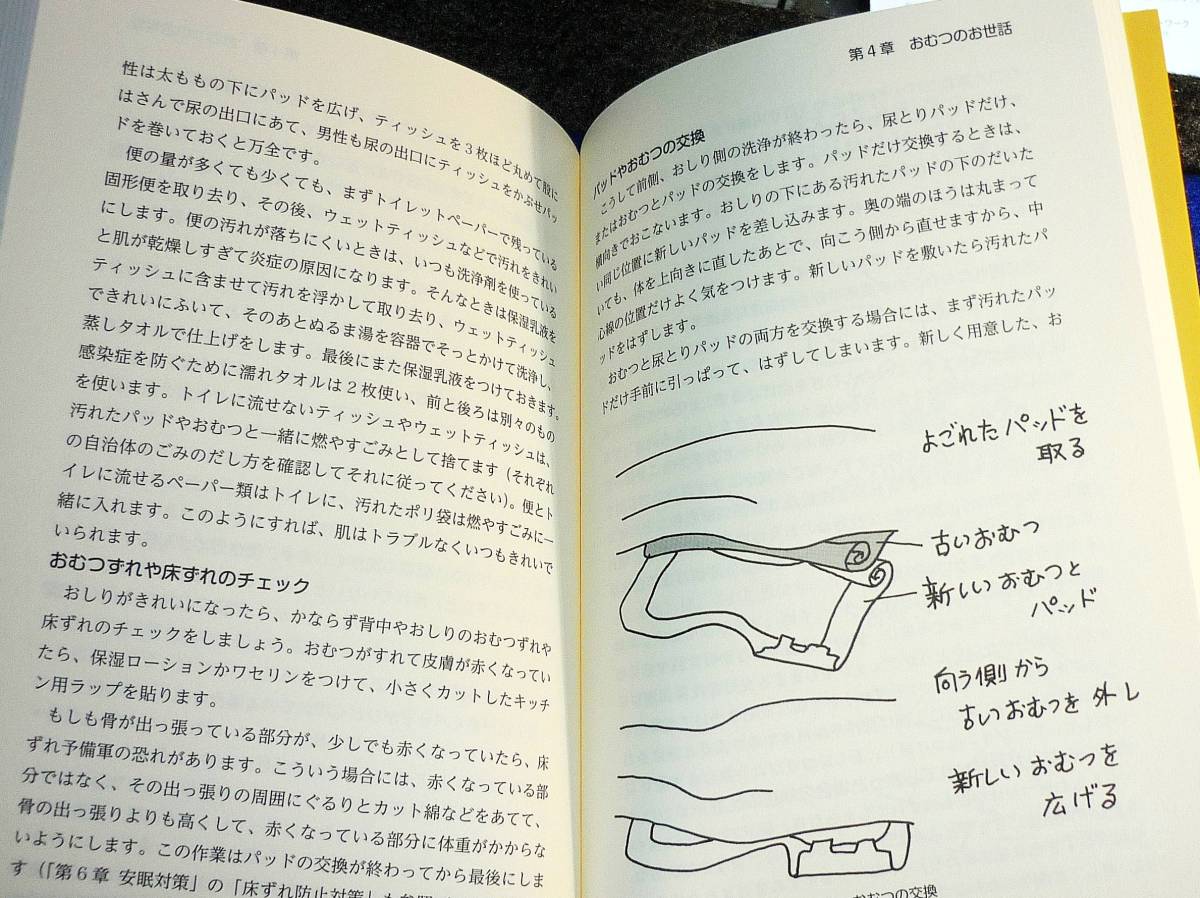 性は太ももの下にパッドを広げ、ティッシュを3枚ほど丸めて股に
はさんで尿の出口にあて、男性も尿の出口にティッシュをかぶせパッ
ドを巻いておくと万全です。
便の量が多くても少くても、まずトイレットペーパーで残っている
固形便を取り去り、その後、ウェットティッシュなどで汚れをきれい
にします。便の汚れが落ちにくいときは、いつも洗浄剤を使っている
と肌が乾燥しすぎて炎症の原因になります。そんなときは保湿乳液を
ティッシュに含ませて汚れを浮かして取り去り、ウェットティッシュ
できれいにふいて、そのあとぬるま湯を容器でそっとかけて洗浄し、
蒸しタオルで仕上げをします。最後にまた保湿乳液をつけておきます。
感染症を防ぐために濡れタオルは2枚使い、前と後ろは別々のもの
を使います。トイレに流せないティッシュやウェットティッシュは、
汚れたパッドやおむつと一緒に燃やすごみとして捨てます（それぞれ
の自治体のごみのだし方を確認してそれに従ってください）。便とト
イレに流せるペーパー類はトイレに、汚れたポリ袋は燃やすごみに一
緒に入れます。このようにすれば、肌はトラブルなくいつもきれいで
いられます。
おむつずれや床ずれのチェック
おしりがきれいになったら、かならず背中やおしりのおむつずれや
床ずれのチェックをしましょう。おむつがすれて皮膚が赤くなってい
たら、保湿ローションかワセリンをつけて、小さくカットしたキッチ
ン用ラップを貼ります。
もしも骨が出っ張っている部分が、少しでも赤くなっていたら、床
ずれ予備軍の恐れがあります。こういう場合には、赤くなっている部
分ではなく、その出っ張りの周囲にぐるりとカット綿などをあてて、
骨の出っ張りよりも高くして、赤くなっている部分に体重がかからな
いようにします。この作業はパッドの交換が終わってから最後にしま
す（「第6章 安眠対策」の「床ずれ防止対策」も参照
第4章 おむつのお世話
パッドやおむつの交換
こうして前側、おしり側の洗浄が終わったら、尿とりパッドだけ、
またはおむつとパッドの交換をします。パッドだけ交換するときは、
横向きでおこないます。おしりの下にある汚れたパッドの下のだいた
い同じ位置に新しいパッドを差し込みます。奥の端のほうは丸まって
いても、体を上向きに直したあとで、向こう側から直せますから、中
心線の位置だけよく気をつけます。新しいパッドを敷いたら汚れたパ
ッドをはずします。
おむつと尿とりパッドの両方を交換する場合には、まず汚れたパッ
ドだけ手前に引っぱって、はずしてしまいます。新しく用意した、お
よごれたパッドを
取る
古いおむつ
新しいおむつと
パッド
向う側から
古いおむつを外し
新しいおむつを
広げる
おむつの交換